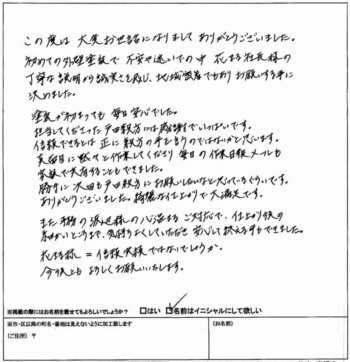 この度は 大変お世話になりまして ありがとうございました。
初めての外壁塗装で 不安や迷いの中 花まる社長様の
丁寧な説明から誠実さを感じ、地域密着でもありお願いする事に
決めました。
塗装が始まっても 毎日安心でした。
担当してくださった戸田親方には感謝でいっぱいです。
信頼できるとは 正に 親方の事を言うのではないかと思います。
真面目に黙々と作業してくださり 毎日の作業日報メールも
家族で共有することもできました。
勝手に 次回も戸田親方に お願いしたいなと思っているぐらいです。
ありがとうございました。綺麗な仕上がりで 大満足です。
また 渡辺様の心温まるご対応で、仕上がり後の
気持ちよくしていただき 安心して 終える事もできました。
花まる様 = 信頼 ではないでしょうか。
今後とも よろしくお願いいたします。
※掲載の際にはお名前を載せてもよろしいでしょうか?
□はい
□名前はイニシャルにして欲しい
※市・区以降の町名・番地は見えないように加工致します
(ご住所) 〒
(お名前)